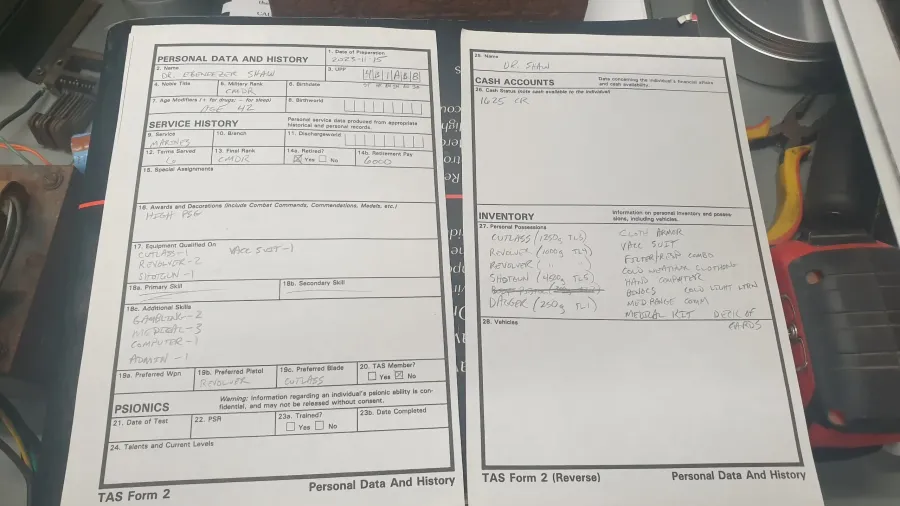 PERSONAL DATA AND HISTORY
1. Date of Preparation
2023-11-15
2. Name
DR. EBENEEZER SHAW
3. UPP
ST DX EN IN ED SO
4. Noble Title
5. Military Rank
CMDR
6. Birthdate
7. Age Modifiers (+ for drugs; – for sleep)
AGE 42
8. Birthworld
SERVICE HISTORY
Personal service data produced from appropriate
historical and personal records.
9. Service
MARINES
10. Branch
11. Dischargeworld
12. Terms Served
6
13. Final Rank
CMDR
14a. Retired?
Yes No
14b. Retirement Pay
6000
15. Special Assignments
16. Awards and Decorations (Include Combat Commands, Commendations, Medals, etc.)
HIGH PSG
17. Equipment Qualified On
CUTLASS-1 VACC SUIT-1
REVOLVER-2
SHOTGUN-1
18a. Primary Skill
18b. Secondary Skill
18c. Additional Skills
GAMBLING-2
MEDICAL-3
COMPUTER-1
ADMIN-1
19a. Preferred Wpn
19b. Preferred Pistol
REVOLVER
19c. Preferred Blade
CUTLASS
20. TAS Member?
Yes No
PSIONICS
Warning: Information regarding an individual's psionic ability is con-
fidential, and may not be released without consent.
21. Date of Test
22. PSR
23a. Trained?
Yes No
23b. Date Completed
24. Talents and Current Levels
TAS Form 2
Personal Data And History
25. Name
DR. SHAW
CASH ACCOUNTS
Data concerning the individual's financial affairs
and cash availability.
26. Cash Status (note cash available to the individual)
1625 CR
INVENTORY
Information on personal inventory and posses-
sions, including vehicles.
27. Personal Possessions
CUTLASS (1250g TL1)
REVOLVER (1000g TL4)
REVOLVER ( " " )
SHOTGUN (
DAGGER (250g TL1)
CLOTH ARMOR
VACC SUIT
COMBO
COLD WEATHER CLOTHING
HAND COMPUTER
COLD LIGHT LTRN
MED RANGE COMM
MEDICAL KIT DECK OF
CARDS
28. Vehicles
TAS Form 2 (Reverse)
Personal Data And History